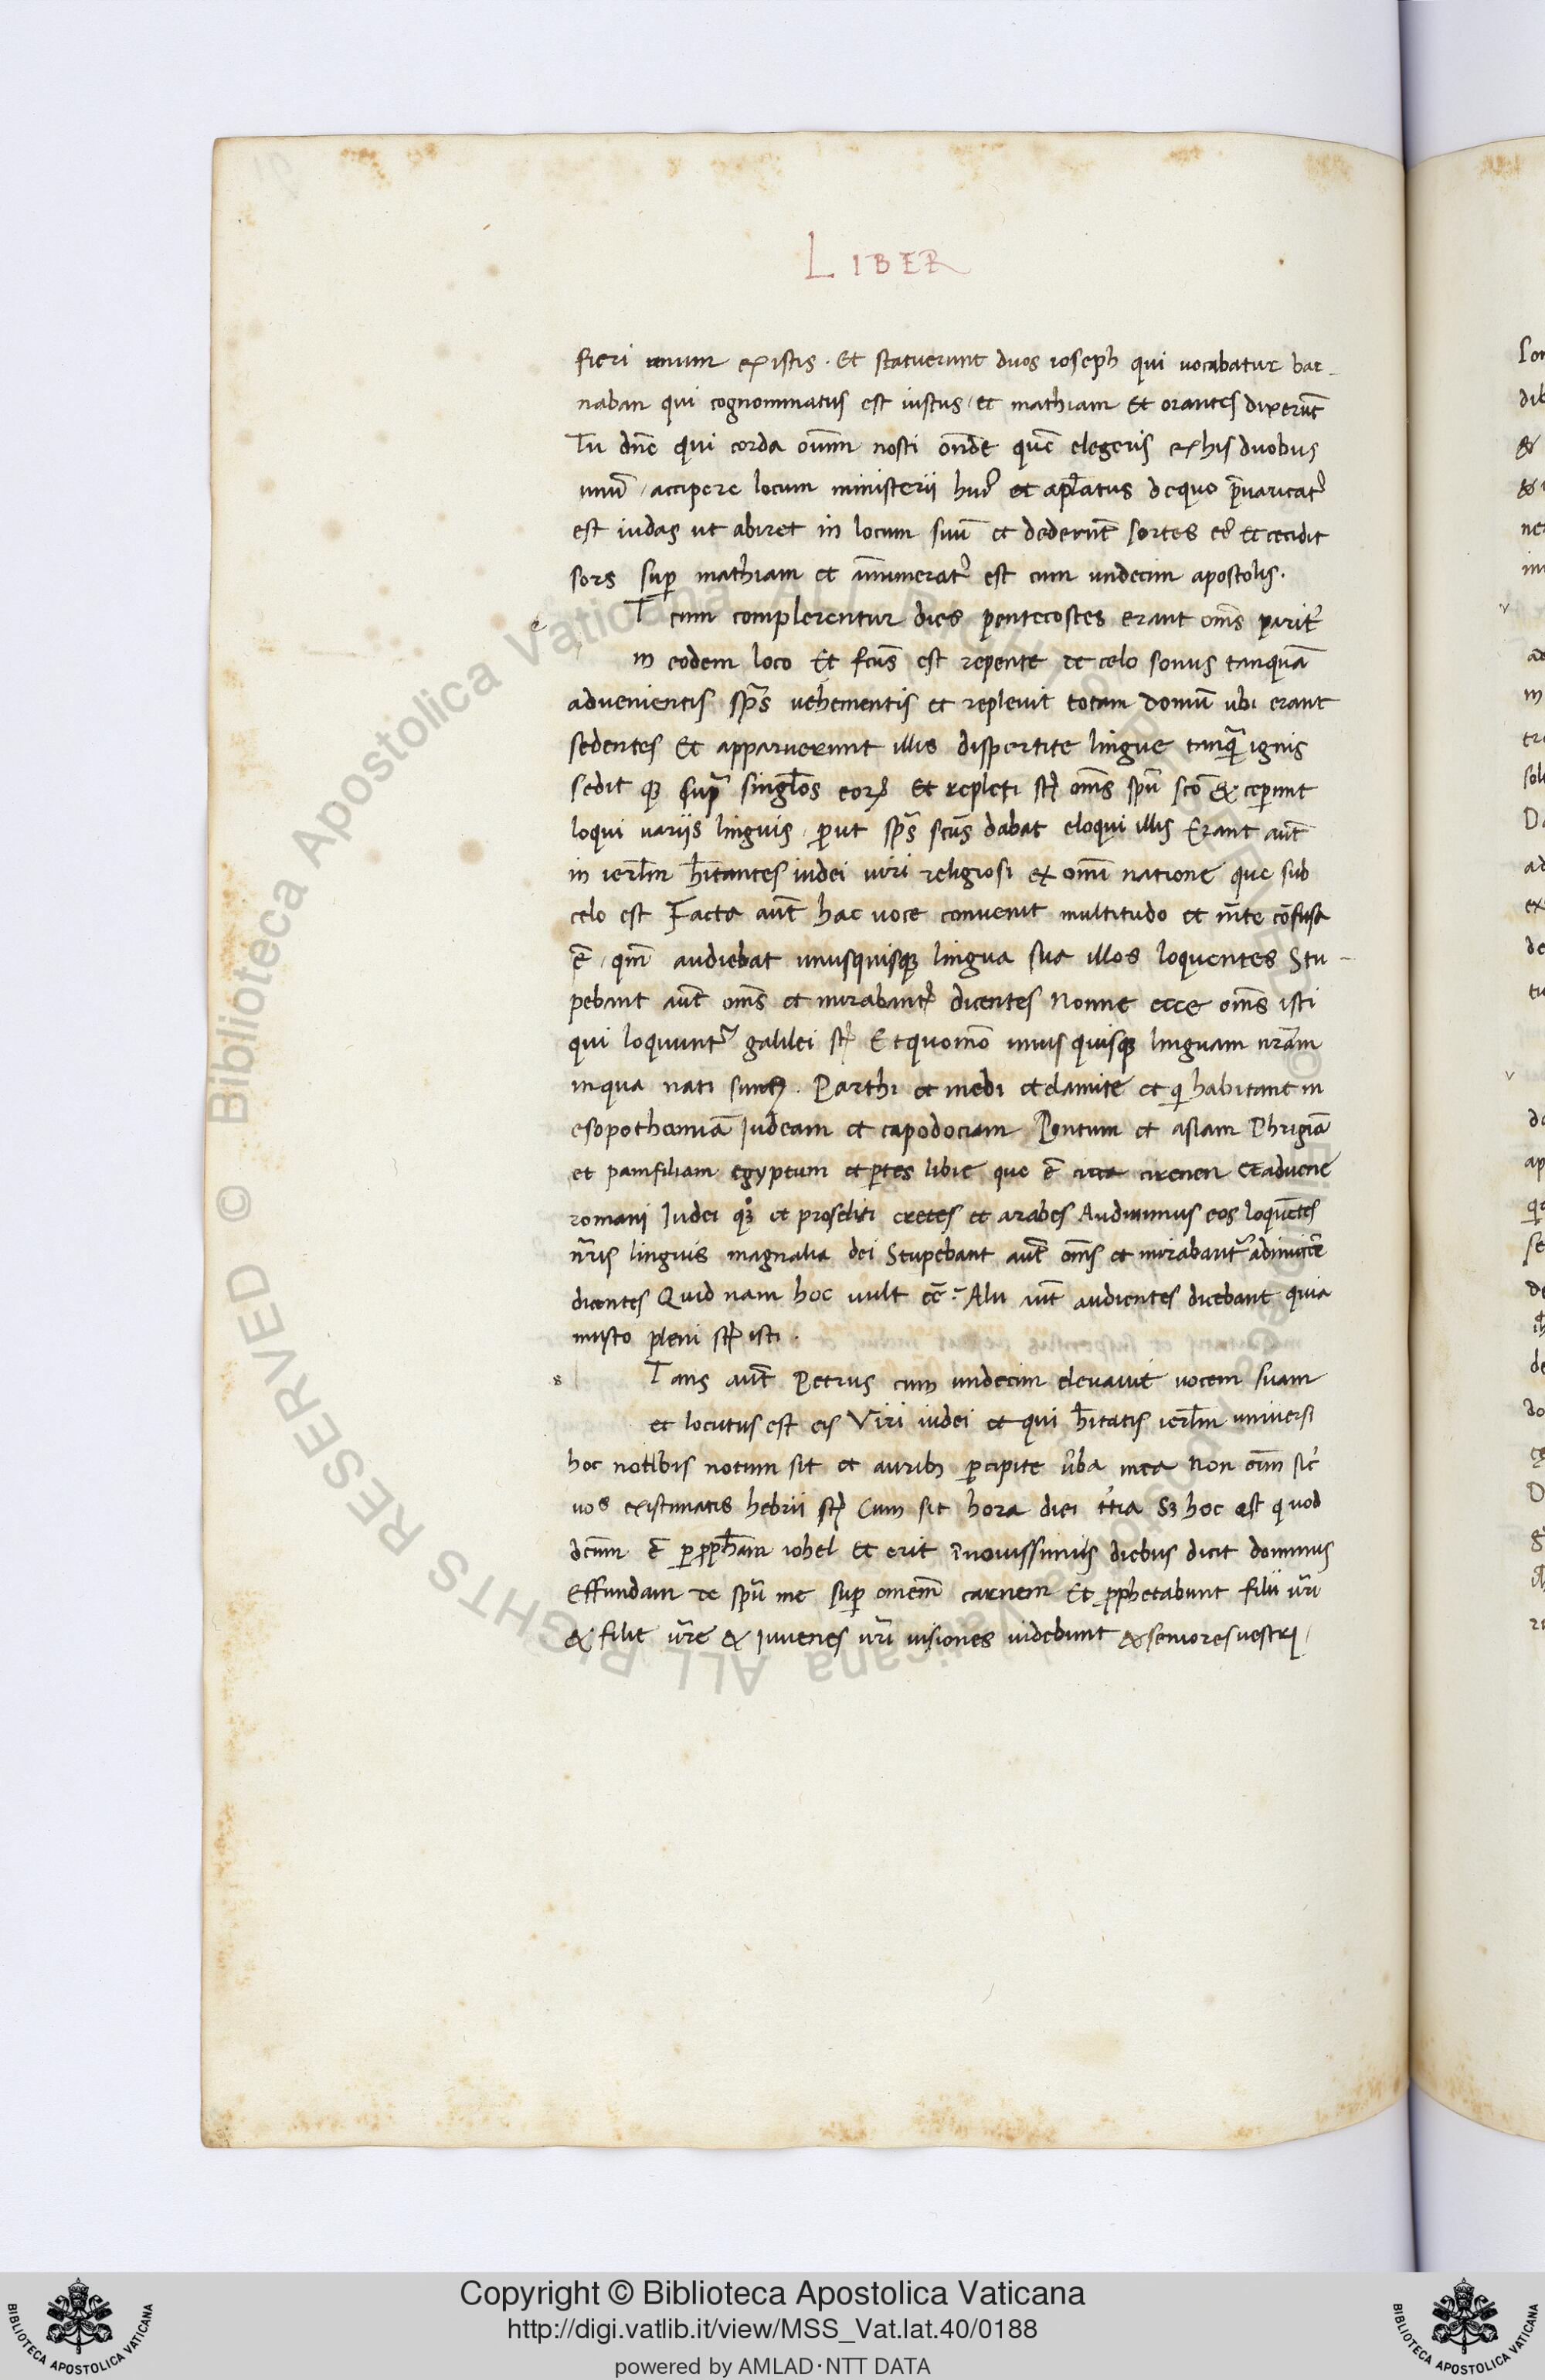 LIBER
fieri unum ex istis. Et statuerunt duos ioseph qui uocabatur bar-
naban qui cognominatus est iustus, et mathiam Et orantes dixerūt
Tu dn̄e qui corda om̄m nosti on̄de quē elegeris ex his duobus
unū, accipere locum ministerii huiꝰ et apl̄atus de quo p̄uaricatꝰ
est iudas ut abiret in locum suū et dederūt sortes eiꝰ Et cecidit
sors sup̄ mathiam et ānumeratꝰ est cum undecim apostolis.
e T cum complerentur dies pentecostes erant om̄s parit̄
in eodem loco Et fc̄us est repente de celo sonus tanquā
aduenientis sp̄s uehementis et repleuit totam domū ubi erant
sedentes Et apparuerunt illis dispertite lingue tanq̄ ignis
sedit qꝫ supra singl̄os eorꝝ Et repleti st̄ om̄s spū sc̄o & ceperunt
loqui uariis linguis, prout sp̄s sc̄us dabat eloqui illis Erant aūt
in ierl̄m h̄itantes iudei uiri religiosi ex om̄i natione que sub
celo est Facta aūt hac uoce conuenit multitudo et m̄te cōfusa
ē, qm̄ audiebat unusquisqꝫ lingua sua illos loquentes Stu-
pebant aūt om̄s et mirabant̄ dicentes Nonne ecce om̄s isti
qui loquunt̄ galilei st̄ Et quomō unus quisqꝫ linguam nr̄am
in qua nati sumꝰ. Parthi et medi et elamite et qi habitant in
esopothamiā Iudeam et capodociam Pontum et asiam Phrigiā
et pamfiliam egyptum et ptes libie que ē circa cirenen et aduene
romani Iudei qꝫ et proseliti cretes et arabes Audiuimus eos loquētes
nr̄is linguis magnalia dei Stupebant aūt om̄s et mirabant̄ adinuicē
dicentes Quid nam hoc uult eē? Alii aūt audientes dicebant quia
musto pleni st̄ isti.
s Tans aūt Petrus cum undecim eleuauit uocem suam
et locutus est eis Viri iudei et qui h̄itatis ierl̄m uniuersi
hoc uobis notum sit et auribꝫ pcipite ūba mea Non eīm sic̄
uos existimatis hebrii st̄ Cum sit hora diei t̄tia Sꝫ hoc est quod
dc̄um ē p pph̄am iohel Et erit ī nouissimis diebus dicit dominus
Effundam de spū me sup̄ omem̄ carnem Et pphetabunt filii ur̄i
& filie ur̄e & iuuenes ur̄i uisiones uidebunt & seniores uestri
Copyright © Biblioteca Apostolica Vaticana
http://digi.vatlib.it/view/MSS_Vat.lat.40/0188
powered by AMLAD·NTT DATA